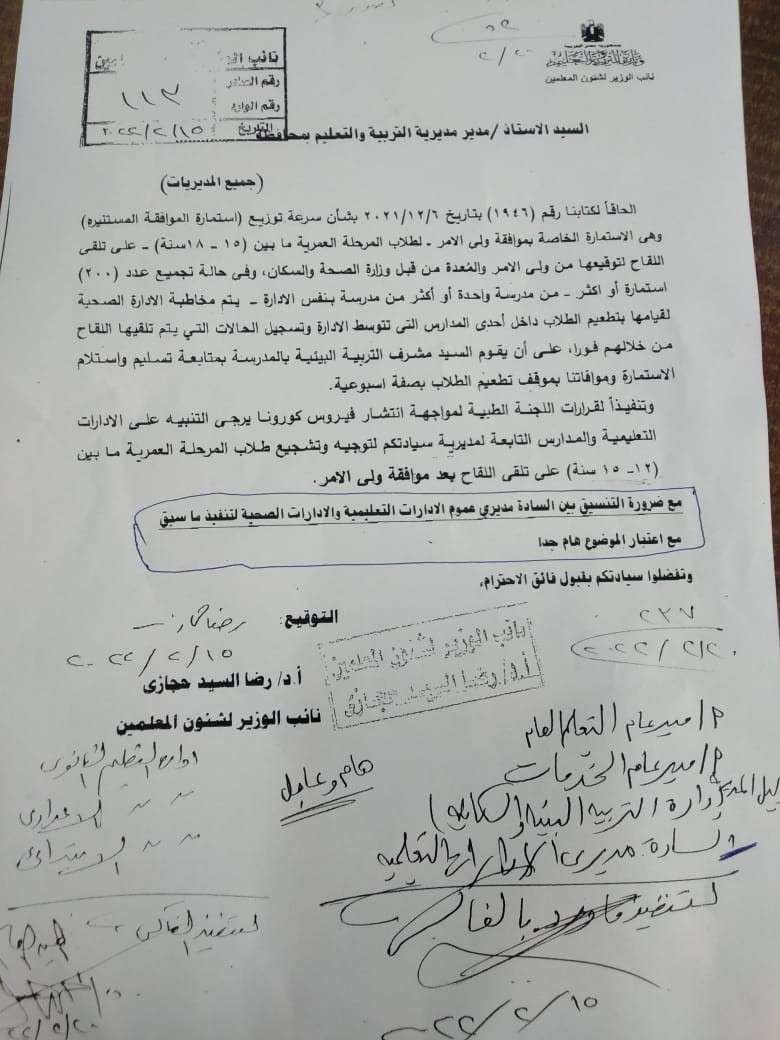 جمهورية مصر العربية
وزارة التربية والتعليم
نائب الوزير لشئون المعلمين
نائب
رقم الصادر
١١٣
رقم الوارد
التاريخ ٢٠٢٢/٢/١٥
السيد الاستاذ /مدير مديرية التربية والتعليم بمحافظة
(جميع المديريات)
الحاقاً لكتابنا رقم (١٩٤٦) بتاريخ ٢٠٢١/١٢/٦ بشأن سرعة توزيع (استمارة الموافقة المستنيره)
وهى الاستمارة الخاصة بموافقة ولى الامر ـ لطلاب المرحلة العمرية ما بين (١٥ – ١٨سنة) ـ على تلقى
اللقاح لتوقيعها من ولى الامر والمُعدة من قبل وزارة الصحة والسكان، وفى حالة تجميع عدد (٢٠٠)
استمارة أو اكثر ـ من مدرسة واحدة أو أكثر من مدرسة بنفس الادارة ـ يتم مخاطبة الادارة الصحية
لقيامها بتطعيم الطلاب داخل أحدى المدارس التى تتوسط الادارة وتسجيل الحالات التي يتم تلقيها اللقاح
من خلالهم فورا، على أن يقوم السيد مشرف التربية البيئية بالمدرسة بمتابعة تسليم واستلام
الاستمارة وموافاتنا بموقف تطعيم الطلاب بصفة اسبوعية.
وتنفيذاً لقرارات اللجنة الطبية لمواجهة انتشار فيروس كورونا يرجى التنبيه على الادارات
التعليمية والمدارس التابعة لمديرية سيادتكم لتوجيه وتشجيع طلاب المرحلة العمرية ما بين
(١٢ـ ١٥ سنة) على تلقى اللقاح بعد موافقة ولى الامر.
مع ضرورة التنسيق بين السادة مديري عموم الادارات التعليمية والادارات الصحية لتنفيذ ما سبق
مع اعتبار الموضوع هام جدا
وتفضلوا سيادتكم بقبول فائق الاحترام،
التوقيع:
٢٠٢٢/٢/١٥
أ.د/ رضا السيد حجازى
نائب الوزير لشئون المعلمين
نائب الوزير لشئون المعلمين
أ.د/ رضا السيد حجازى
٢٣٧
٢٠٢٢/٢/٢٠
م/مدير عام التعليم العام
م/مدير عام الخدمات
إدارة التربية البيئية والسكانية
السادة مديرى الإدارات التعليمية
هام وعاجل
إدارة التعليم الثانوى
الاعدادى
الابتدائى
٢٠٢٢/٢/١٥